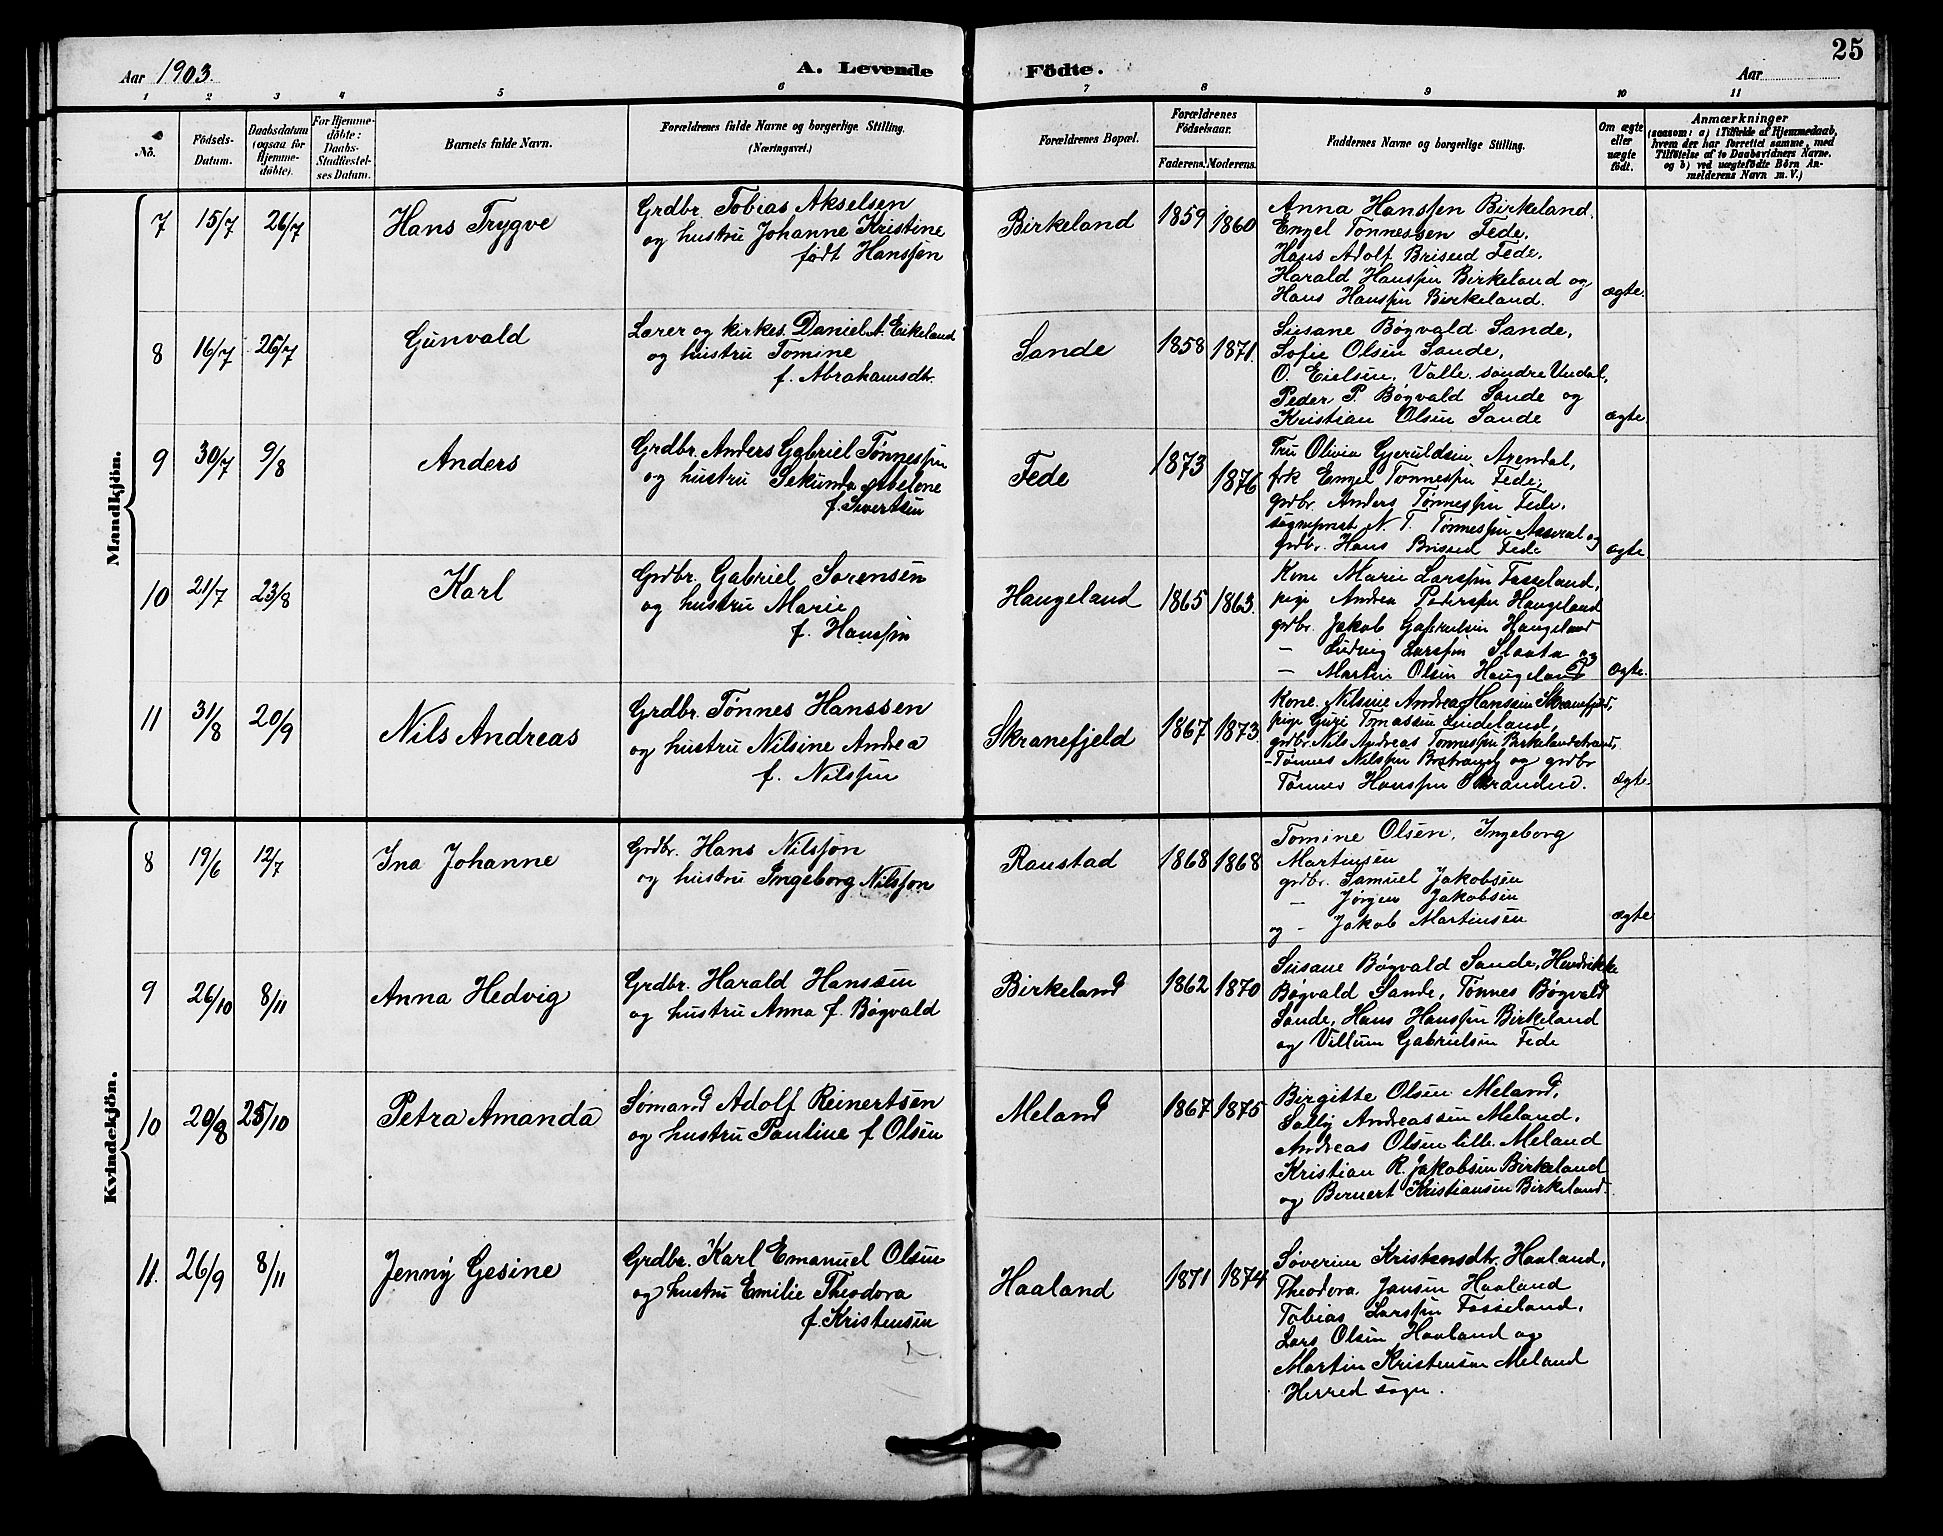 25
Aar 1903. A. Levende Födte. Aar
1 2 3 4 5 6 7 8 9 10 11
No.
Födsels-Datum.
Daabsdatum (ogsaa for Hjemme-döbte).
For Hjemme-döbte: Daabs-Stadfæstel-ses Datum.
Barnets fulde Navn.
Forældrenes fulde Navne og borgerlige Stilling.
(Næringsvei.)
Forældrenes Bopæl.
Forældrenes Födselsaar.
Faderens. Moderens.
Faddernes Navne og borgerlige Stilling.
Om ægte eller uægte födt.
Anmærkninger
(saasom: a) i Tilfælde af Hjemmedaab, hvem der har forrettet samme, med Tilföielse af to Daabsvidners Navne, og b) ved uægtefödte Börn An-melderens Navn m. V.)
Mandkjön.
7 15/7 26/7 Hans Trygve
Grdbr. Tobias Akselsen
og hustru Johanne Kristine
født Hanssen
Birkeland 1859 1860
Anna Hanssen Birkeland.
Engel Tønnessen Fede,
Hans Adolf Brisud Fede,
Harald Hanssen Birkeland og
Hans Hanssen Birkeland.
ægte.
8 16/7 26/7 Gunvald
Lærer og kirkes. Daniel A. Eikeland
og hustru Tomine
f. Abrahamsdtr.
Sande 1858 1871.
Susane Bøgvald Sande,
Sofie Olsen Sande,
O. Eielsen, Valle, søndre Undal,
Peder P. Bøgvald Sande og
Kristian Olsen Sande
ægte
9 30/7 9/8 Anders
Grdbr. Anders Gabriel Tønnessen
og hustru Sekunda Abelone
f. Sivertsen
Fede 1873 1876
Fru Olivia Gjeruldsen Arendal,
frk Engel Tønnessen Fede,
grdbr. Anders Tønnessen Fede,
sogneprest N. T. Tønnessen Aaseral og
grdbr. Hans Brisud Fede
ægte
10 21/7 23/8 Karl
Grdbr. Gabriel Sørensen
og hustru Marie
f. Hanssen
Haugeland 1865 1863.
Kone Marie Larssen Fasseland,
pige Andrea Pederssen Haugeland
grdbr. Jakob Gabrielsen Haugeland
- Ludvig Larssen og
- Martin Olsen Haugeland
ægte.
11 31/8 20/9 Nils Andreas
Grdbr. Tønnes Hanssen
og hustru Nilsine Andrea
f. Nilssen
Skranefjeld 1867 1873
Kone Nilsine Andrea Hanssen Skranefjeld,
pige Guri Tomassen Lindeland,
grdbr. Nils Andreas Tønnessen Birkelandstrand,
- Tønnes Nilssen og grdbr
Tønnes Hanssen
ægte.
Kvindekjön.
8 19/6 12/7 Ina Johanne
Grdbr. Hans Nilsson
og hustru Ingeborg Nilsson
Raustad 1868 1868
Tomine Olsen, Ingeborg
Martinsen
grdbr. Samuel Jakobsen
- Jørgen Jakobsen
og - Jakob Martinsen
ægte
9 26/10 8/11 Anna Hedvig
Grdbr. Harald Hanssen
og hustru Anna f. Bøgvald
Birkeland 1862 1870
Susane Bøgvald Sande, Hendrikke
Bøgvald Sande, Tønnes Bøgvald
Sande, Hans Hanssen Birkeland
og Villum Gabrielsen Fede
10 20/8 25/10 Petra Amanda
Sømand Adolf Reinertsen
og hustru Pauline f Olsen
Meland 1867 1875
Birgitte Olsen Meland,
Sally Andreassen Meland,
Andreas Olsen lille Meland
Kristian R. Jakobsen Birkeland
og Bernert Kristiansen Birkeland.
11. 26/9 8/11 Jenny Gesine
Grdbr. Karl Emanuel Olsen
og hustru Emilie Theodora
f. Kristensen
Haaland 1871 1874
Søverine Kristensdtr. Haaland,
Theodora Jansen Haaland
Tobias Larssen Fasseland,
Lars Olsen Haaland og
Martin Kristensen Meland
Herred sogn.